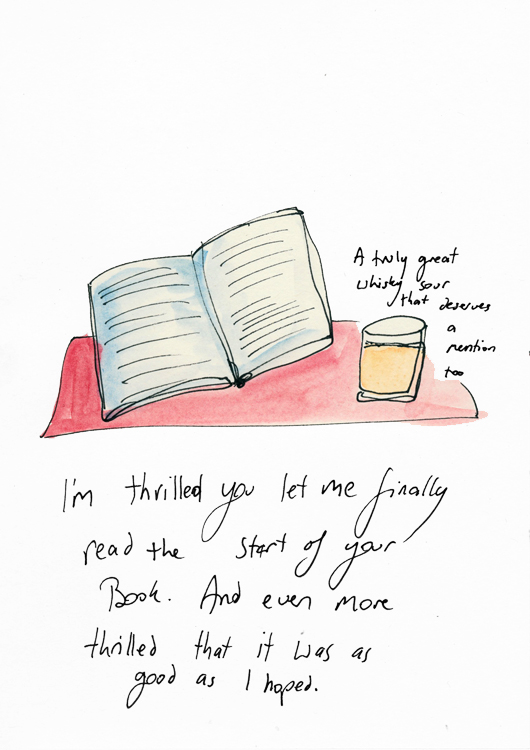 A truly great
whisky sour
that deserves
a
mention
too
I'm thrilled you let me finally
read the start of your
Book. And even more
thrilled that it was as
good as I hoped.